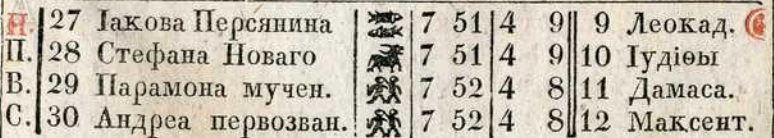 Н. 27 Іакова Персянина 7 51 4 9 9 Леокад.
П. 28 Стефана Новаго 7 51 4 9 10 Іудіѳы
В. 29 Парамона мучен. 7 52 4 8 11 Дамаса.
С. 30 Андреа первозван. 7 52 4 8 12 Максент.